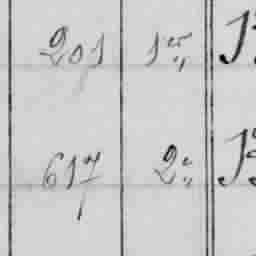 201 1er
617 2e